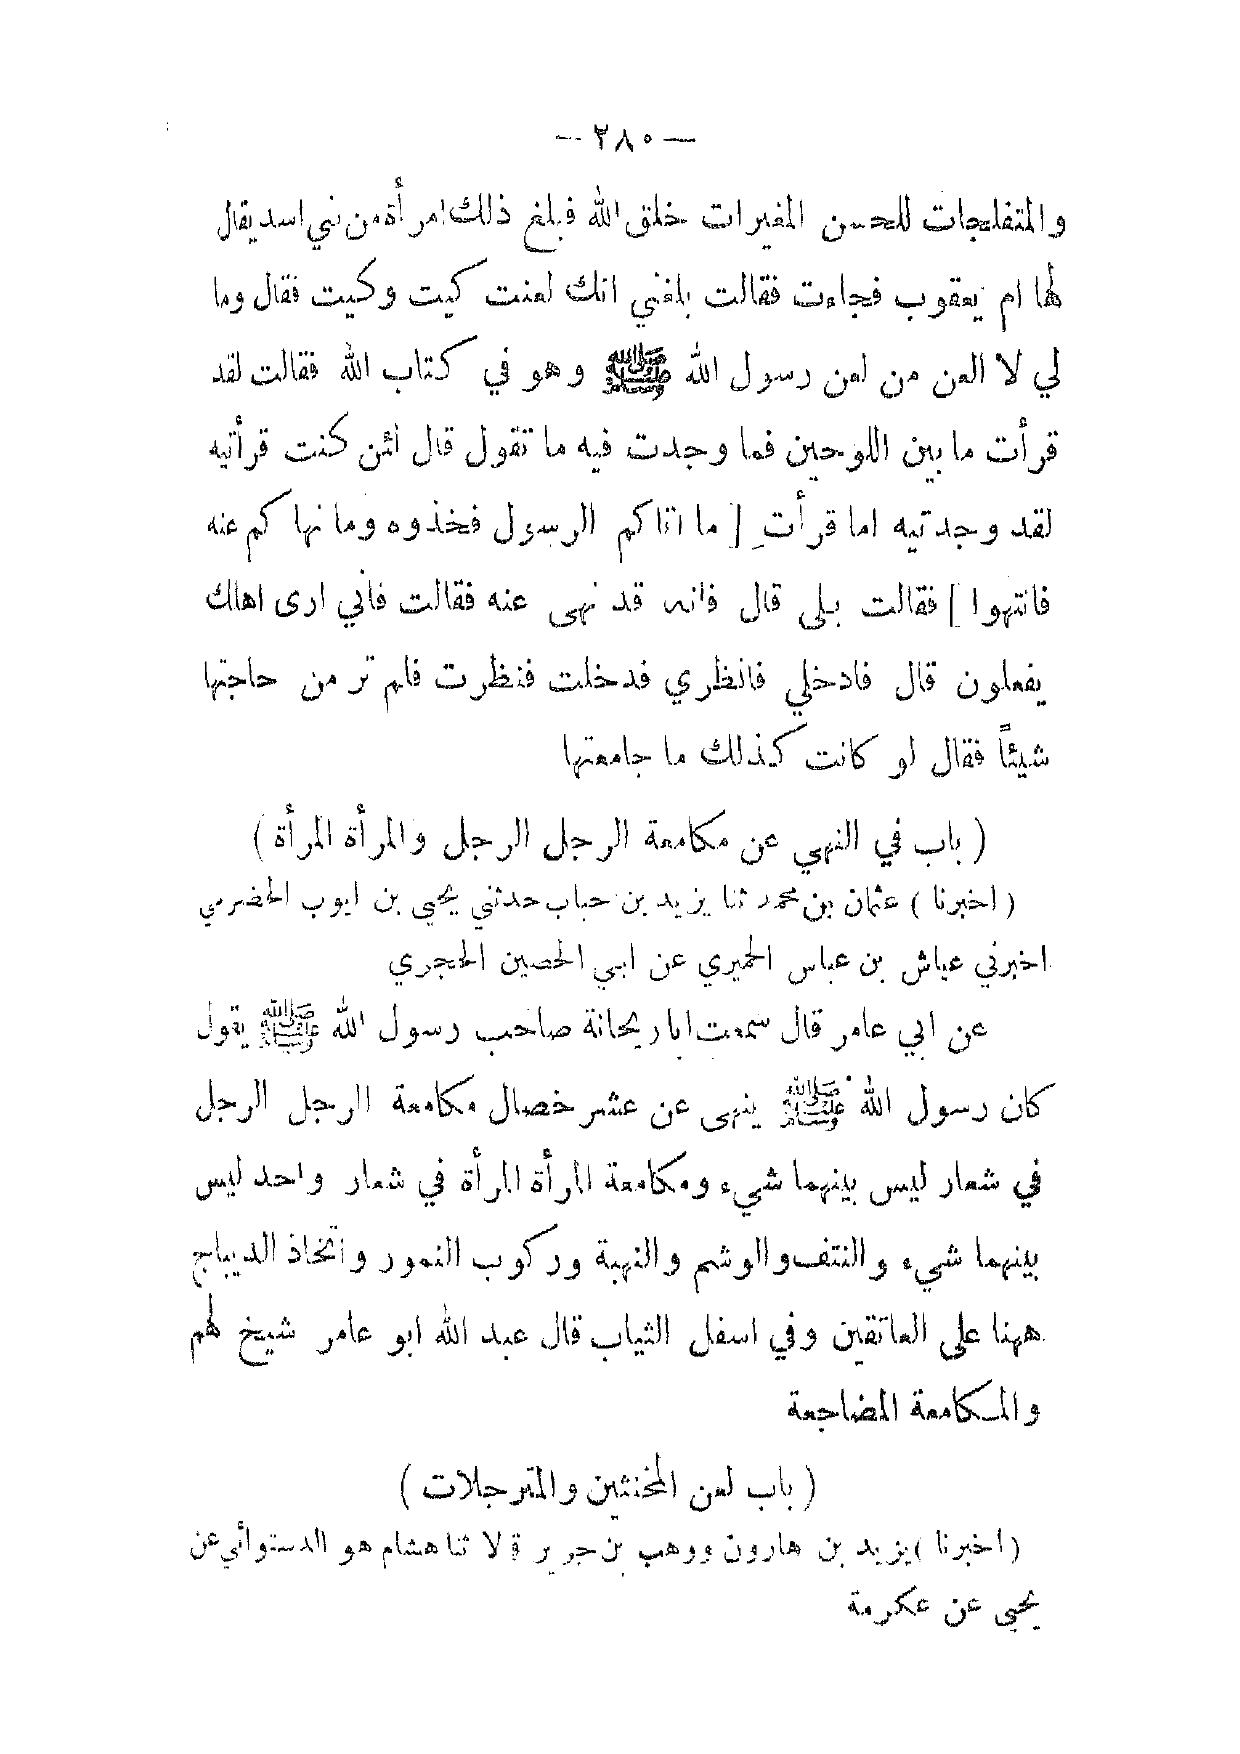 — ٢٨٠ —
والمتفلجات للحسن المغيرات خلق الله فبلغ ذلك امرأة من بني اسد يقال
لها ام يعقوب فجاءت فقالت بلغني انك لعنت كيت وكيت فقال وما
لي لا العن من لعن رسول الله ﷺ وهو في كتاب الله فقالت لقد
قرأت ما بين اللوحين فما وجدت فيه ما تقول قال لئن كنت قرأتيه
لقد وجدتيه اما قرأتِ [ ما اتاكم الرسول فخذوه وما نهاكم عنه
فانتهوا ] فقالت بلى قال فانه قد نهى عنه فقالت فاني ارى اهلك
يفعلون قال فادخلي فانظري فدخلت فنظرت فلم تر من حاجتها
شيئاً فقال لو كانت كذلك ما جامعتها
( باب في النهي عن مكامعة الرجل الرجل والمرأة المرأة )
( اخبرنا ) عثمان بن محمد ثنا يزيد بن حباب حدثني يحيى بن ايوب الحضرمي
اخبرني عياش بن عباس الحميري عن ابي الحصين الحجري
عن ابي عامر قال سمعت ابا ريحانة صاحب رسول الله ﷺ يقول
كان رسول الله ﷺ ينهى عن عشر خصال مكامعة الرجل الرجل
في شعار ليس بينهما شيء ومكامعة المرأة المرأة في شعار واحد ليس
بينهما شيء والنتف والوشم والنهبة وركوب النمور واتخاذ الديباج
ههنا على العاتقين وفي اسفل الثياب قال عبد الله ابو عامر شيخ لهم
والمكامعة المضاجعة
( باب لعن المخنثين والمترجلات )
( اخبرنا ) يزيد بن هارون ووهب بن جرير قالا ثنا هشام هو الدستوائي عن
يحيى عن عكرمة